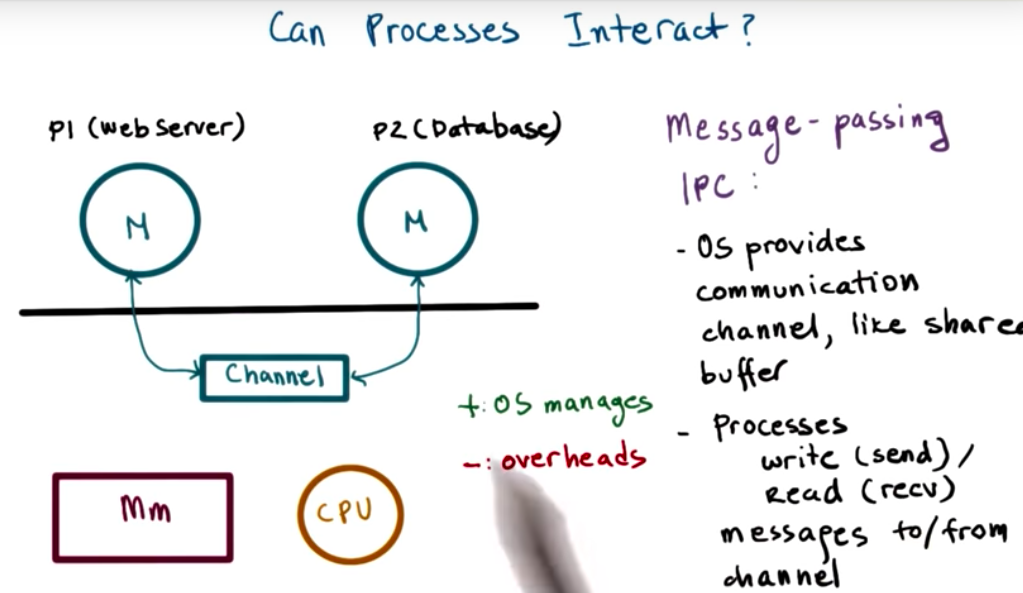 Can Processes Interact?
P1 (Web Server)
P2 (Database)
M
M
Channel
+: OS manages
-: overheads
Mm
CPU
Message-passing
IPC :
- OS provides
communication
channel, like share
buffer
- Processes
write (send) /
Read (recv)
messages to/from
channel